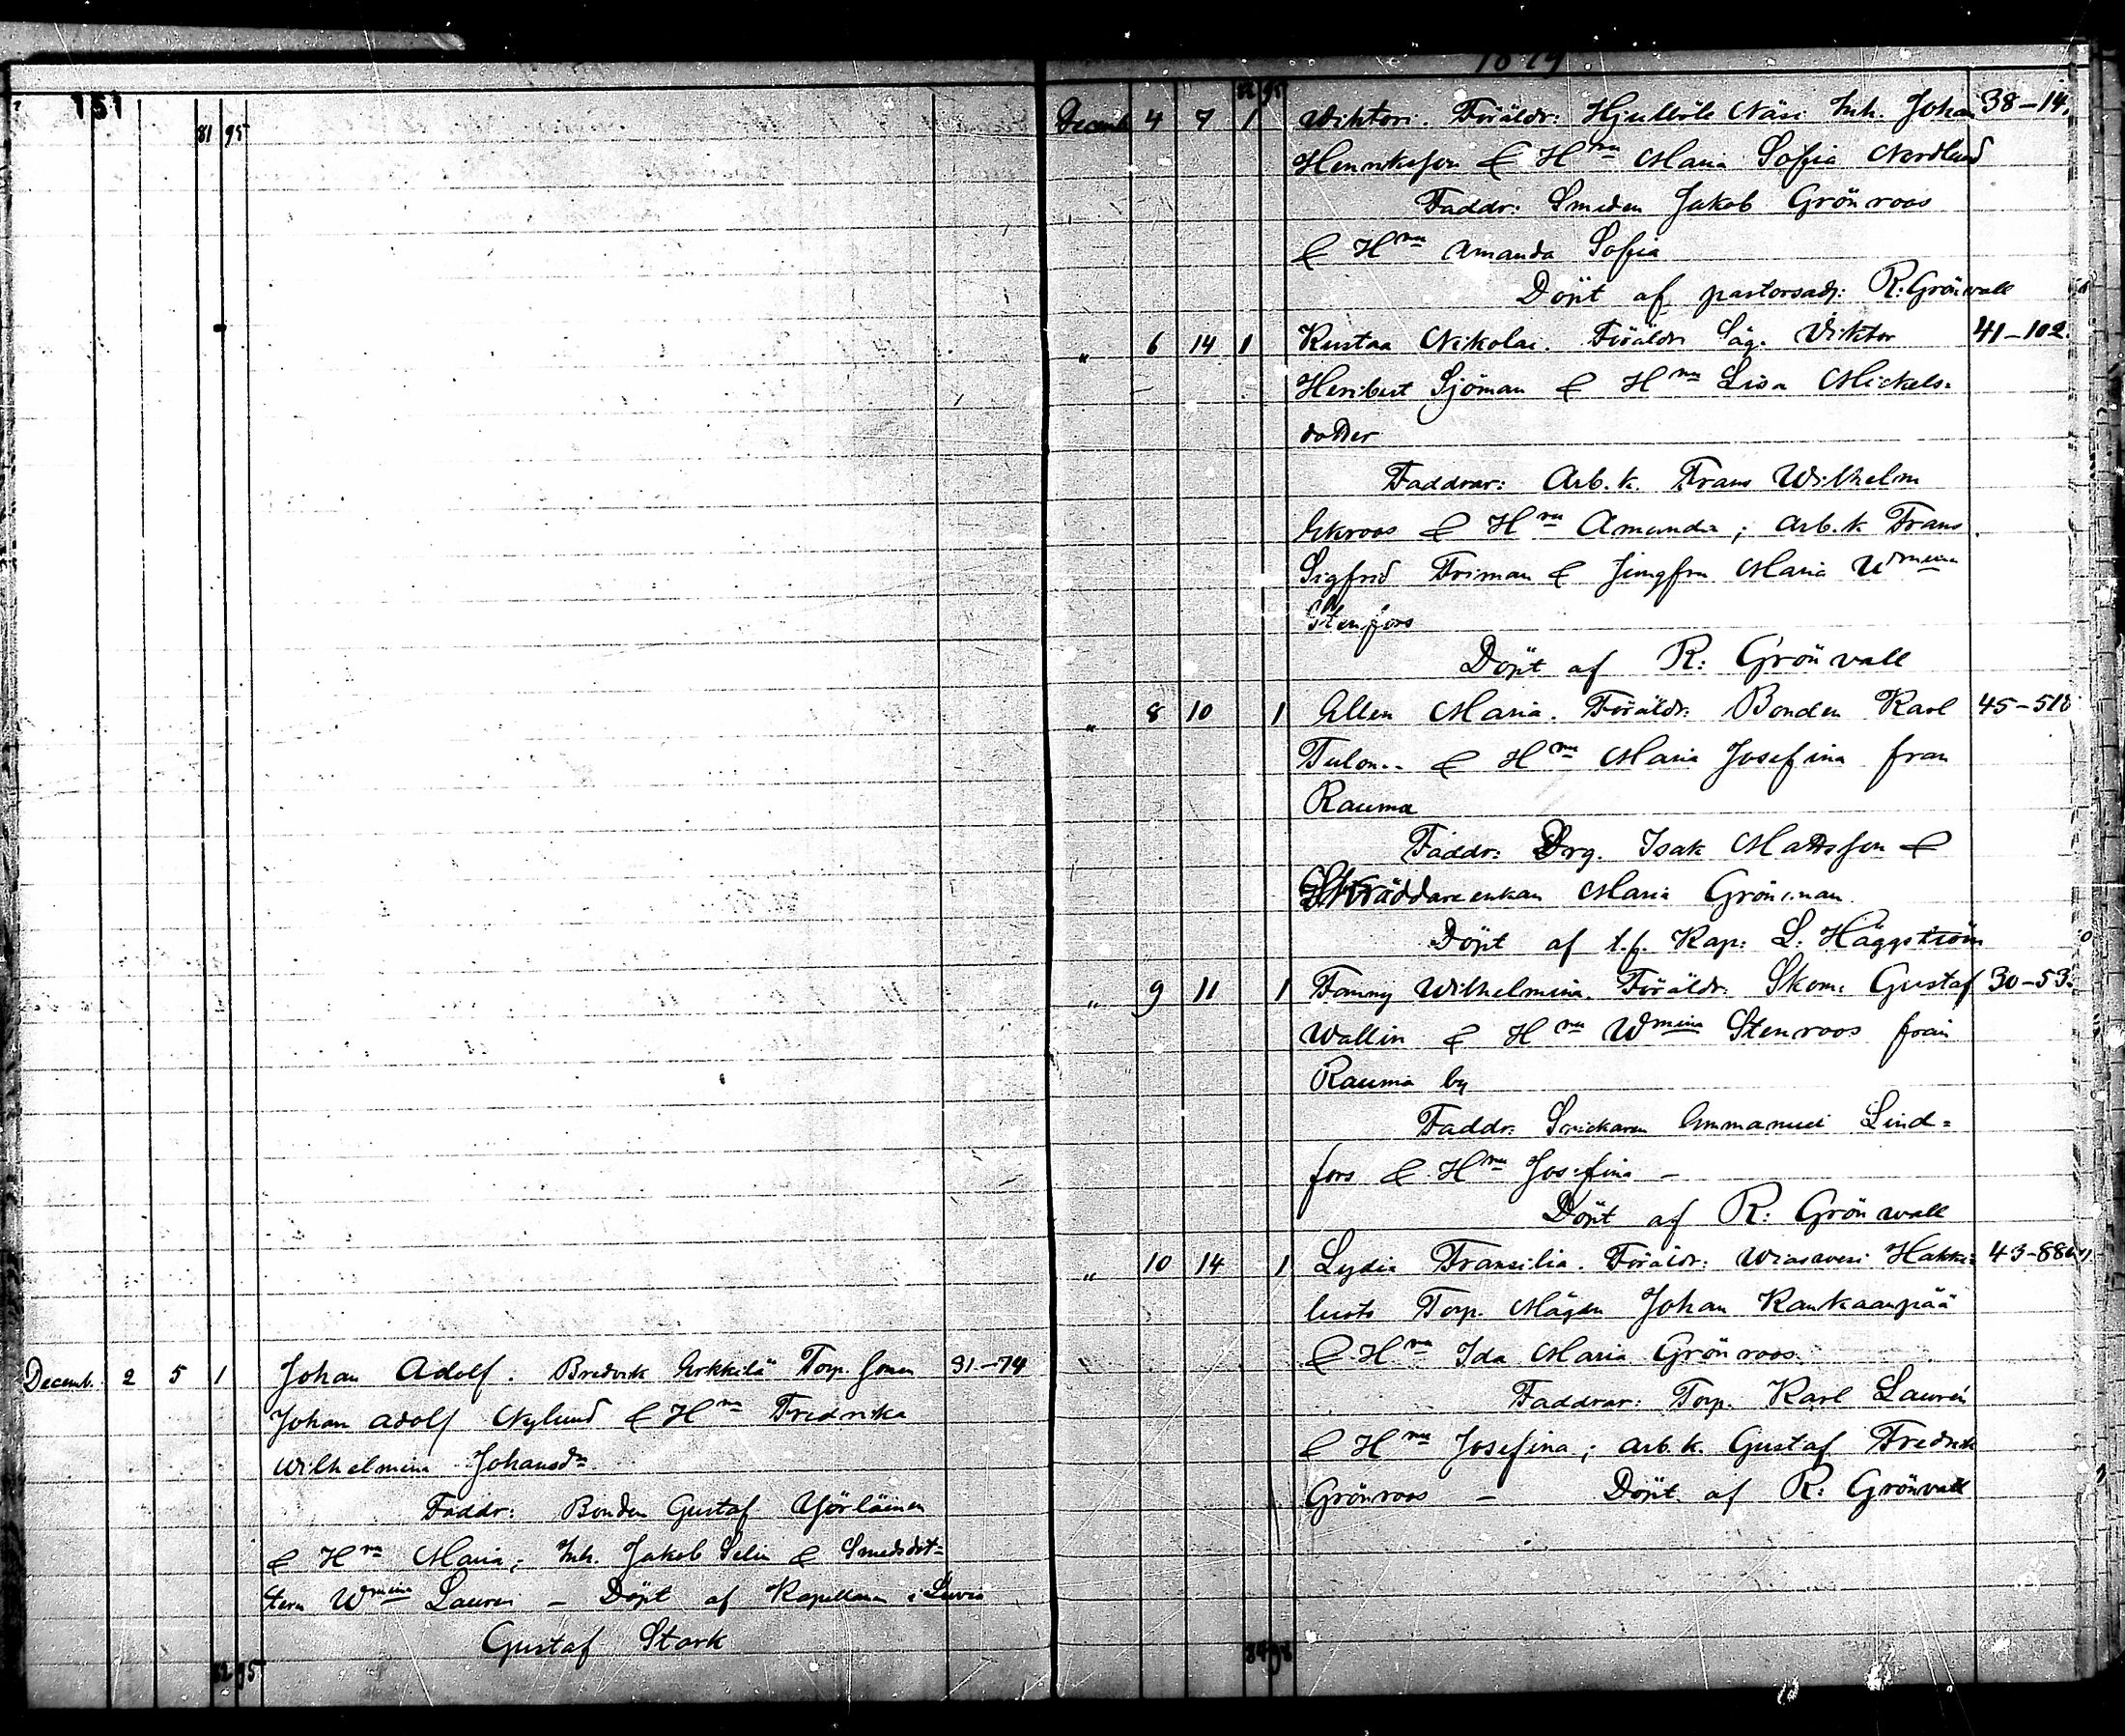 151
81 95
Decemb. 2 5 1 Johan Adolf. Bredvik Erkkilä Torp. Sonen 31–74
Johan Adolf Nylund & H^ru Fredrika
Wilhelmina Johansd^r
Faddr: Bonden Gustaf Yörläinen
& H^ru Maria; Inh. Jakob Selin & Smedsdot=
tern W^mina Lauren – Döpt af Kapellanen i Luvia
Gustaf Stark
82 95
1879
82 95
Decemb. 4 7 1 Wiktor. Föräldr: Hjulböle Näsi Inh. Johan 38–14.
Henriksson & H^ru Maria Sofia Nordlund
Faddr: Smeden Jakob Grönroos
& H^ru Amanda Sofia
Döpt af pastorsadj: R: Grönvall
" 6 14 1 Kustaa Nikolai. Föräldr: Säg. Viktor 41–102.
Heribert Sjöman & H^ru Lisa Mickels=
dotter
Faddrar: Arb.k. Frans Wilhelm
Ekroos & H^ru Amanda; Arb.k Frans
Sigfrid Friman & Jungfru Maria W^mina
Stenfors
Döpt af R: Grönvall
" 8 10 1 Ellen Maria. Föräldr: Bonden Karl 45–518
& H^ru Maria Josefina från
Rauma
Faddr: Drg. Isak Mattsson &
Skräddareenkan Maria Grönman
Döpt af t.f. Kap: L: Häggström
" 9 11 1 Fanny Wilhelmina. Föräldr: Skom. Gustaf 30–53.
Wallin & H^ru W^mina Stenroos från
Rauma by
Faddr: Snickaren Emmanuel Lind=
fors & H^ru Josefina –
Döpt af R: Grönvall
" 10 14 1 Lydia Fransilia. Föräldr: Wiasvesi Hakki= 43–88
luoto Torp. Mågen Johan Kankaanpää
& H^ru Ida Maria Grönroos.
Faddrar: Torp. Karl Lauren
& H^ru Josefina; Arb.k. Gustaf Fredrik
Grönroos – Döpt af R: Grönvall
84 98